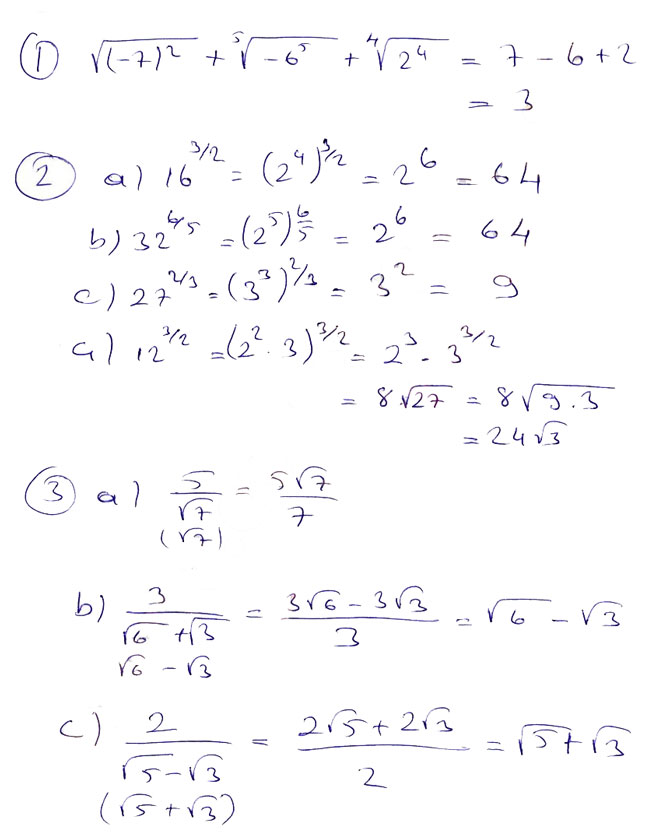 ① √(-7)² + ⁵√-6⁵ + ⁴√2⁴ = 7 - 6 + 2
= 3
② a) 16^3/2 = (2⁴)^3/2 = 2⁶ = 64
b) 32^6/5 = (2⁵)^6/5 = 2⁶ = 64
c) 27^2/3 = (3³)^2/3 = 3² = 9
a) 12^3/2 = (2² · 3)^3/2 = 2³ - 3^3/2
= 8√27 = 8√9.3
= 24√3
③ a) 5/√7 = 5√7/7
(√7)
b) 3/(√6 + √3) = (3√6 - 3√3)/3 = √6 - √3
√6 - √3
c) 2/(√5 - √3) = (2√5 + 2√3)/2 = √5 + √3
(√5 + √3)